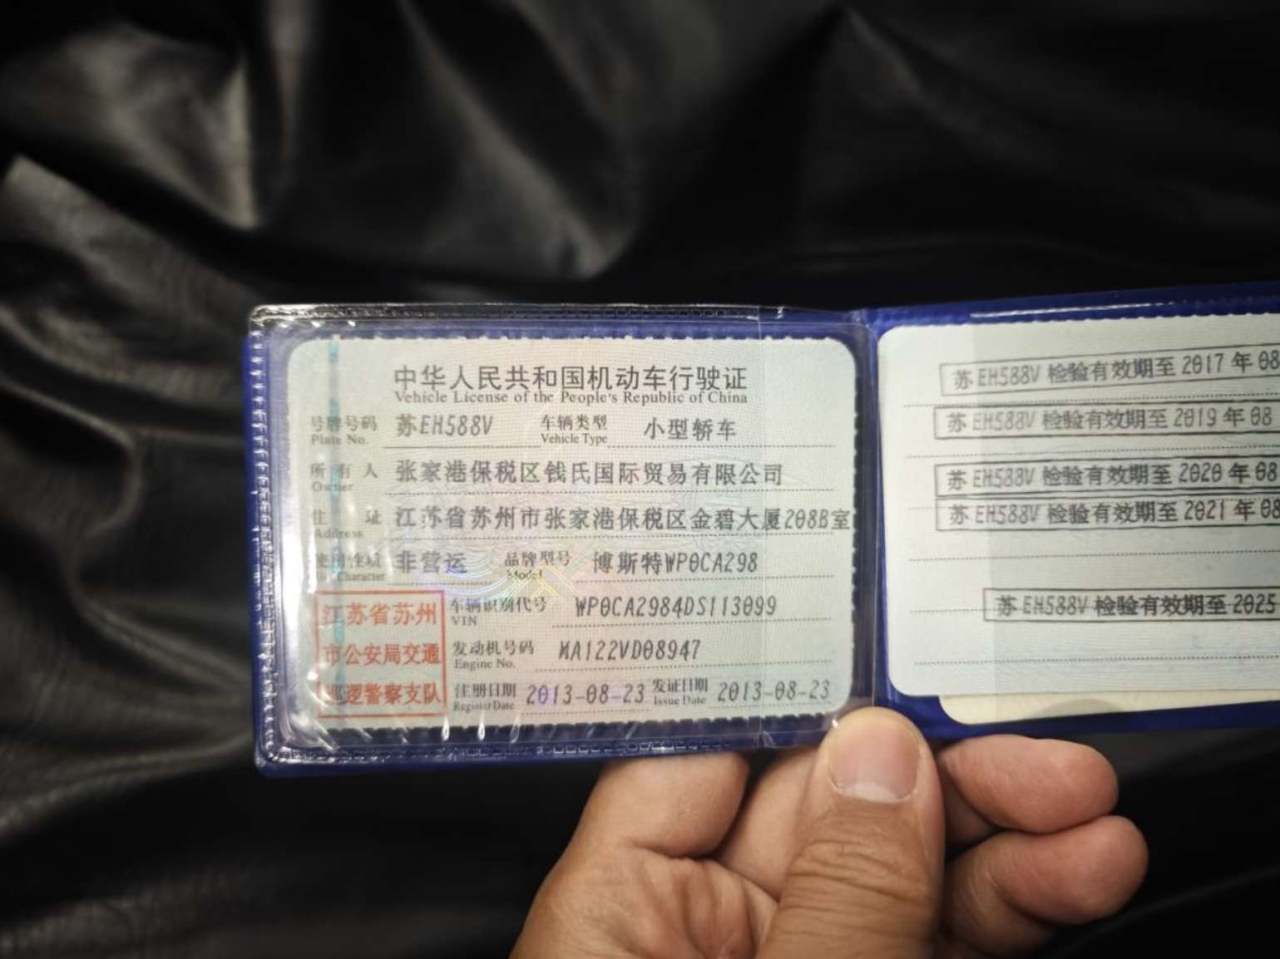 中华人民共和国机动车行驶证
Vehicle License of the People's Republic of China
号牌号码 苏EH588V 车辆类型 小型轿车
Plate No. Vehicle Type
所有人 张家港保税区钱氏国际贸易有限公司
Owner
住址 江苏省苏州市张家港保税区金碧大厦208B室
Address
使用性质 非营运 品牌型号 博斯特WP0CA298
Character Model
江苏省苏州
市公安局交通
巡逻警察支队
车辆识别代号 WP0CA2984DS113099
VIN
发动机号码 MA122VD08947
Engine No.
注册日期 2013-08-23 发证日期 2013-08-23
Register Date Issue Date
苏EH588V 检验有效期至 2017 年 08
苏EH588V 检验有效期至 2019 年 08
苏EH588V 检验有效期至 2020 年 08
苏EH588V 检验有效期至 2021 年 08
苏EH588V 检验有效期至 2025